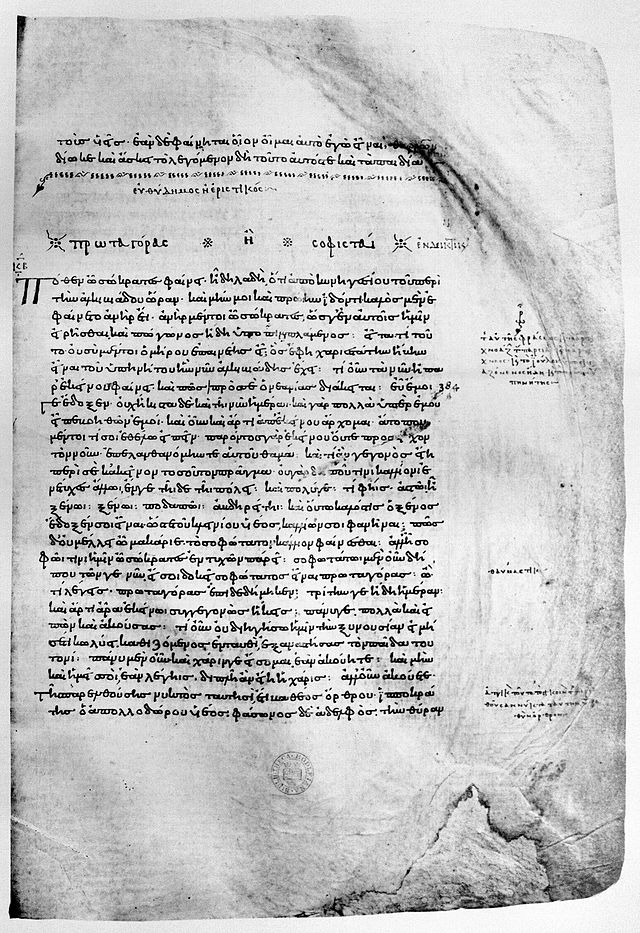 τοὺς ὑεῖς· ἐὰν δὲ φαίνηται οἷον οἶμαι αὐτὸ ἐγὼ εἶναι, θαρρῶν
δίωκε καὶ ἄσκει τὸ λεγόμενον δὴ τοῦτο αὐτός τε καὶ τὰ παιδία
εὐθύδημος ἢ ἐριστικός
πρωταγόρας ἢ σοφισταί ἐνδεικτικός
Πόθεν ὦ σώκρατες φαίνῃ· ἢ δῆλα δὴ, ὅτι ἀπὸ κυνηγεσίου τοῦ περὶ
τὴν ἀλκιβιάδου ὥραν· καὶ μήν μοι καὶ πρώην ἰδόντι καλὸς μὲν ἐ
φαίνετο ἀνὴρ ἔτι· ἀνὴρ μέντοι ὦ σώκρατες, ὥς γ' ἐν αὐτοῖς ἡμῖν
εἰρῆσθαι, καὶ πώγωνος ἤδη ὑποπιμπλάμενος: εἶτα τί τοῦ
το· οὐ σὺ μέντοι ὁμήρου ἐπαινέτης εἶ, ὃς ἔφη χαριεστάτην ἥβην
εἶναι τοῦ ὑπηνήτου ἣν νῦν ἀλκιβιάδης ἔχει: τί οὖν τὰ νῦν· ἦ πα
ρ' ἐκείνου φαίνῃ· καὶ πῶς πρός σε ὁ νεανίας διάκειται: εὖ ἔμοι 384
γε ἔδοξεν· οὐχ ἥκιστα δὲ καὶ τῇ νῦν ἡμέρᾳ· καὶ γὰρ πολλὰ ὑπὲρ ἐμοῦ
εἶπε βοηθῶν ἐμοί· καὶ οὖν καὶ ἄρτι ἀπ' ἐκείνου ἔρχομαι· ἄτοπον
μέντοι τί σοι ἐθέλω εἰπεῖν· παρόντος γὰρ ἐκείνου οὔτε προσεῖχον
τὸν νοῦν· ἐπελανθανόμην τε αὐτοῦ θαμά: καὶ τί ἂν γεγονὸς εἴη
περὶ σὲ κἀκεῖνον τοσοῦτον πρᾶγμα· οὐ γὰρ δήπου τινὶ καλλίονι ἐ
νέτυχες ἄλλῳ, ἔν γε τῇδε τῇ πόλει: καὶ πολύ γε: τί φῄς· ἀστῷ ἢ
ξένῳ: ξένῳ: ποδαπῷ: ἀβδηρίτῃ: καὶ οὕτω καλός τις ὁ ξένος
ἔδοξέν σοι εἶναι ὥστε τοῦ κλεινίου ὑέος, καλλίων σοι φανῆναι: πῶς
δ' οὐ μέλλει ὦ μακάριε τὸ σοφώτατον κάλλιον φαίνεσθαι: ἀλλ' ἦ σο
φῷ τινι ἡμῖν ὦ σώκρατες ἐντυχὼν πάρει: σοφωτάτῳ μὲν οὖν δή
που τῶν γε νῦν, εἴ σοι δοκεῖ σοφώτατος εἶναι πρωταγόρας: ὢ
τί λέγεις· πρωταγόρας ἐπιδεδήμηκεν: τρίτην γε ἤδη ἡμέραν:
καὶ ἄρτι ἄρα ἐκείνῳ συγγεγονὼς ἥκεις: πάνυ γε, πολλὰ καὶ εἰ
πὼν καὶ ἀκούσας: τί οὖν οὐ διηγήσω ἡμῖν τὴν ξυνουσίαν εἰ μή
σέ τι κωλύει, καθιζόμενος ἐνταυθὶ, ἐξαναστήσας τὸν παῖδα του
τονί: πάνυ μὲν οὖν καὶ χάριν γε εἴσομαι, ἐὰν ἀκούητε: καὶ μὴν
καὶ ἡμεῖς σοὶ, ἐὰν λέγῃς: διπλῆ ἂν εἴη ἡ χάρις: ἀλλ' οὖν ἀκούετε
τῆς παρελθούσης νυκτὸς ταυτησὶ, ἔτι βαθέος ὄρθρου· ἱπποκρά
της ὁ ἀπολλοδώρου ὑὸς, φάσωνος δὲ ἀδελφὸς, τὴν θύραν
BIBLIOTHECA BODLEIANA